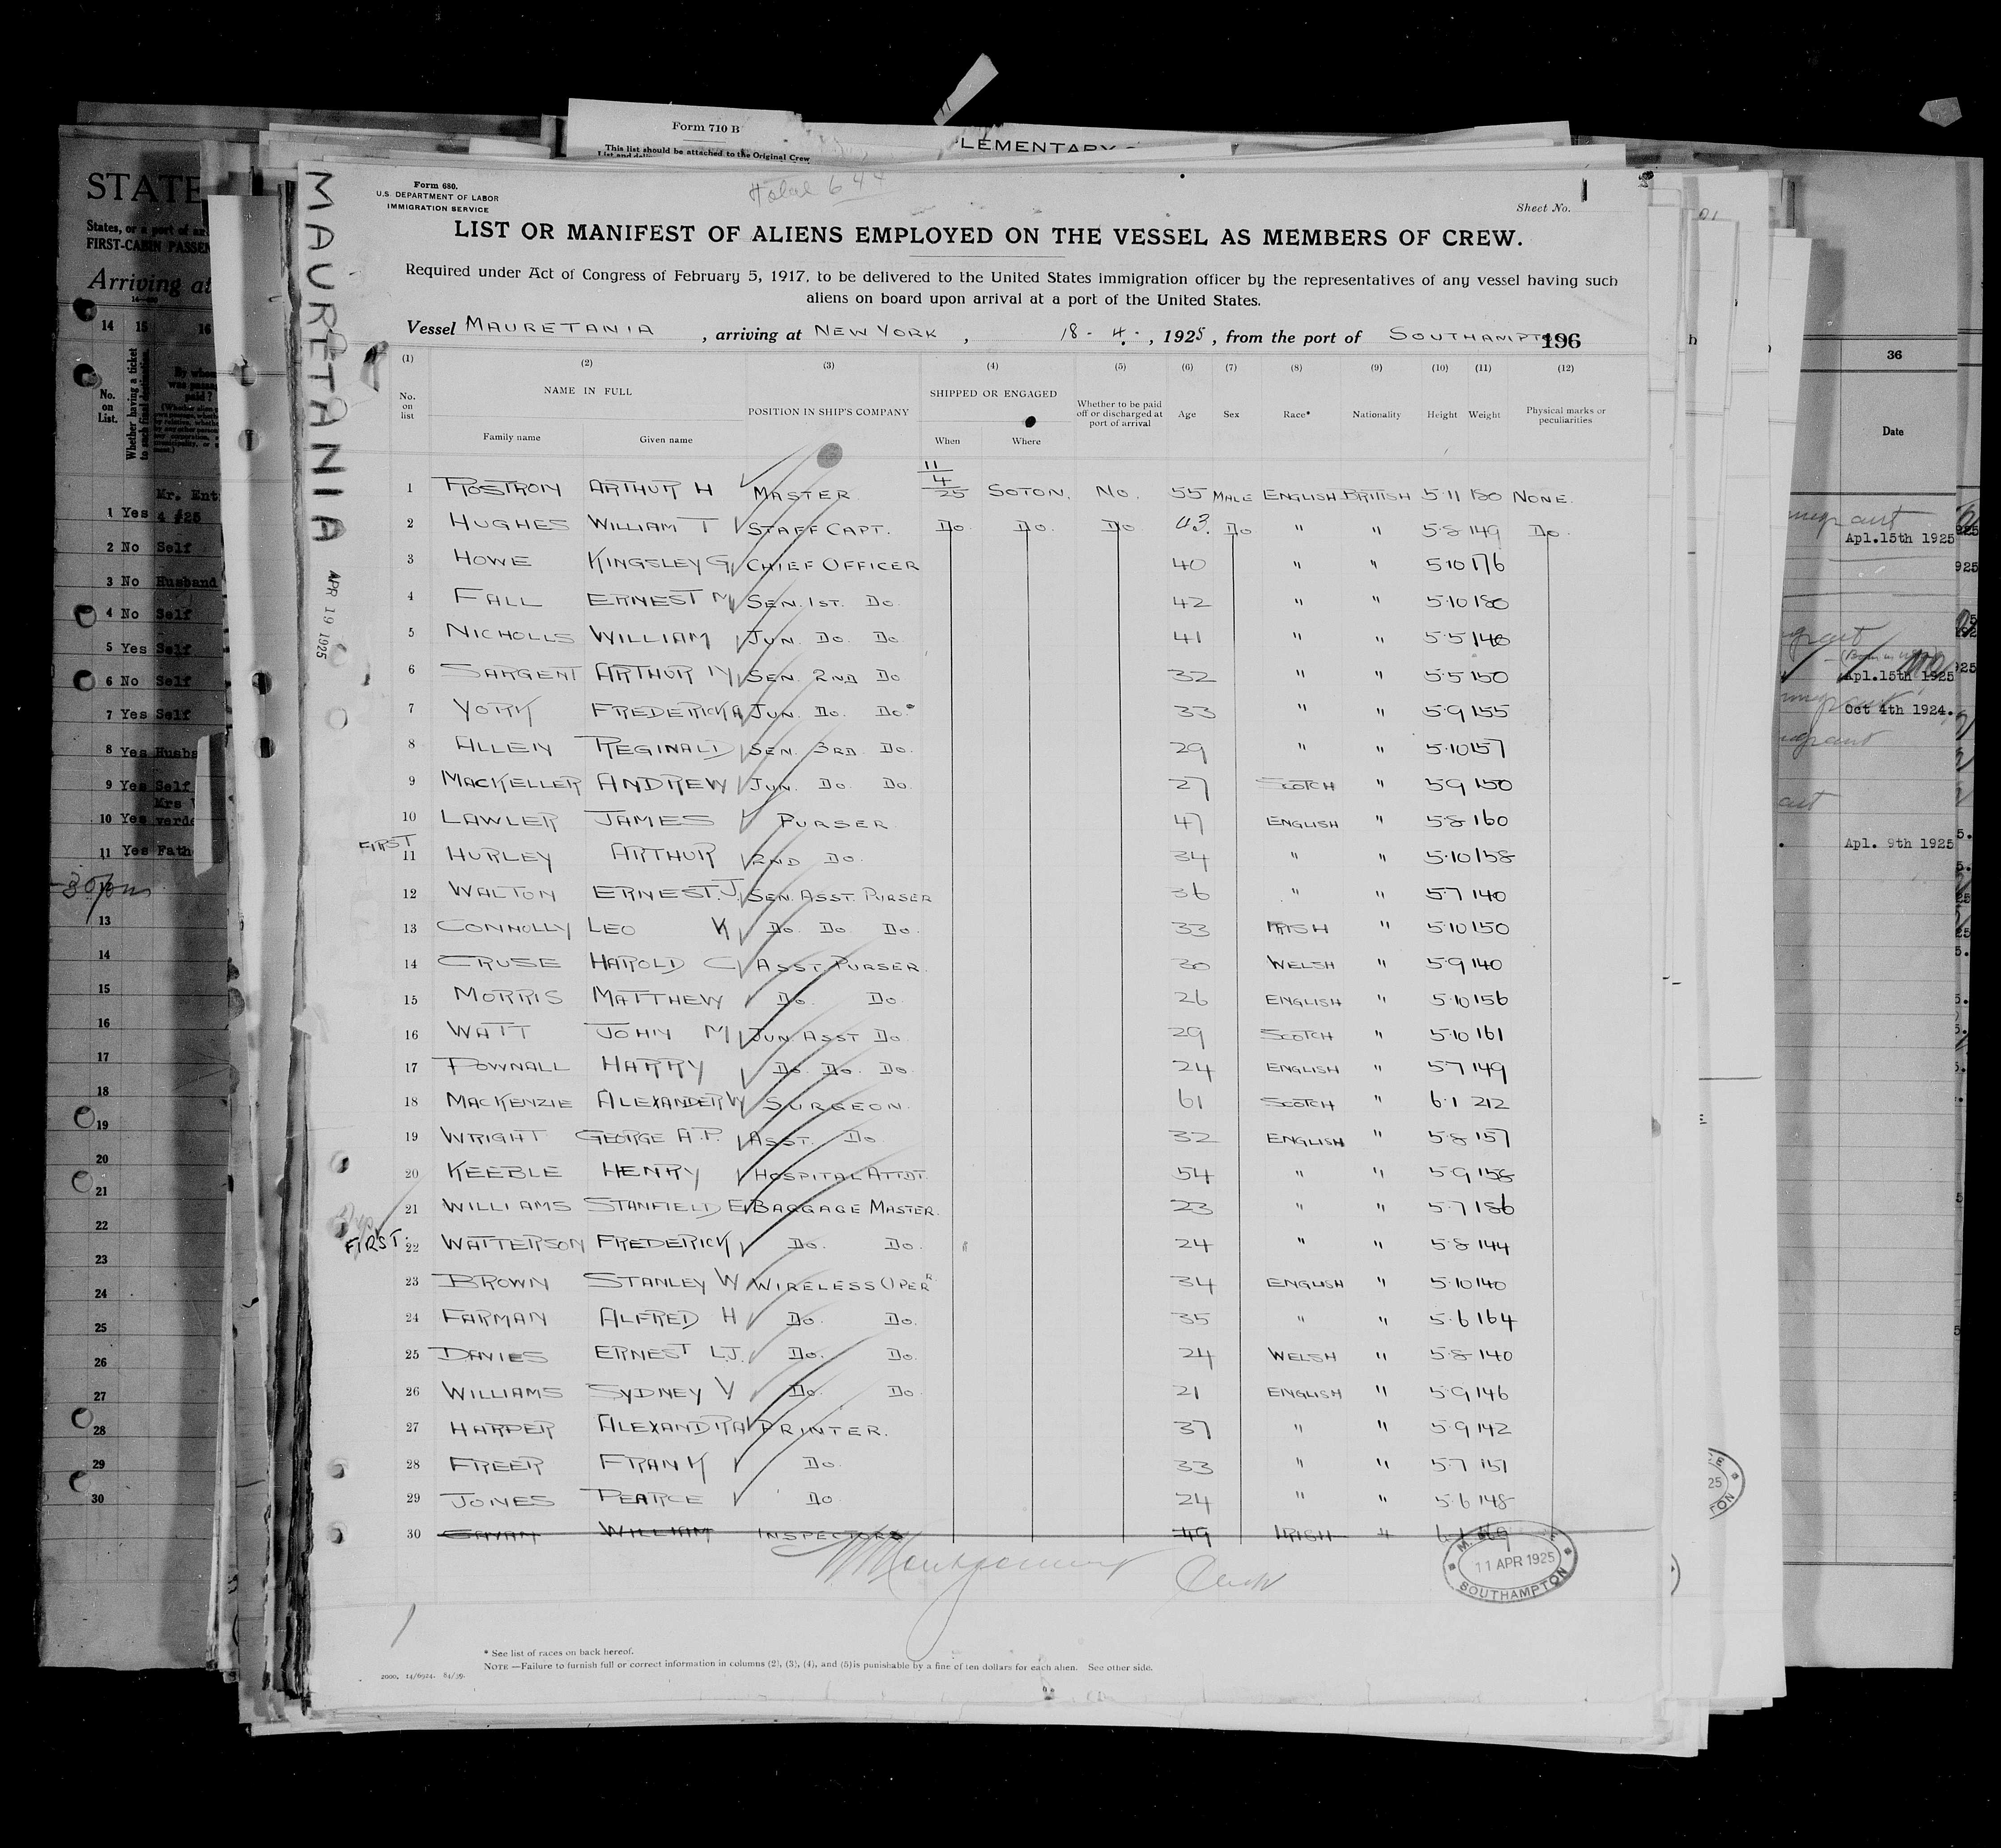 Form 710 B
This list should be attached to the Original Crew
LEMENTARY
STATE
States, or a port of
FIRST-CABIN PASSEN
Arriving at
14 15 16
Whether having a ticket to such final destination.
By whom was passage paid?
No. on List.
Mr. Ent
1 Yes 4 #25
2 No Self
3 No Husband
4 No Self
5 Yes Self
6 No Self
7 Yes Self
8 Yes Husba
9 Yes Self
Mrs
10 Yes verde
11 Yes Fath
13
14
15
16
17
18
19
20
21
22
23
24
25
26
27
28
29
30
MAURETANIA APR 19 1925
Form 680.
U.S. DEPARTMENT OF LABOR
IMMIGRATION SERVICE
Total 644
Sheet No. 1
LIST OR MANIFEST OF ALIENS EMPLOYED ON THE VESSEL AS MEMBERS OF CREW.
Required under Act of Congress of February 5, 1917, to be delivered to the United States immigration officer by the representatives of any vessel having such
aliens on board upon arrival at a port of the United States.
Vessel MAURETANIA, arriving at NEW YORK, 18-4-, 1925, from the port of SOUTHAMPTON 196
(1) (2) (3) (4) (5) (6) (7) (8) (9) (10) (11) (12)
No. on list NAME IN FULL POSITION IN SHIP'S COMPANY SHIPPED OR ENGAGED Whether to be paid off or discharged at port of arrival Age Sex Race* Nationality Height Weight Physical marks or peculiarities
Family name Given name When Where
1 ROSTRON ARTHUR H MASTER 11/4/25 SOTON. No. 55 MALE ENGLISH BRITISH 5·11 180 NONE.
2 HUGHES WILLIAM T STAFF CAPT. Do. Do. Do 43. Do " " 5·8 149 Do.
3 HOWE KINGSLEY G CHIEF OFFICER 40 " " 5·10 176
4 FALL ERNEST M SEN. 1ST. Do. 42 " " 5·10 180
5 NICHOLLS WILLIAM JUN. Do. Do. 41 " " 5·5 140
6 SARGENT ARTHUR N SEN. 2ND Do 32 " " 5·5 150
7 YORK FREDERICK A JUN. Do. Do. 33 " " 5·9 155
8 ALLEN REGINALD SEN. 3RD. Do. 29 " " 5·10 157
9 MACKELLER ANDREW JUN. Do. Do. 27 SCOTCH " 5·9 150
10 LAWLER JAMES PURSER 47 ENGLISH " 5·8 160
FIRST
11 HURLEY ARTHUR 2ND Do. 34 " " 5·10 158
12 WALTON ERNEST. J. SEN. ASST. PURSER 36 " " 5·7 140
13 CONNOLLY LEO K Do. Do. Do. 33 IRISH " 5·10 150
14 CRUSE HAROLD C ASST. PURSER. 30 WELSH " 5·9 140
15 MORRIS MATTHEW Do. Do. 26 ENGLISH " 5·10 156
16 WATT JOHN M JUN. ASST Do. 29 SCOTCH " 5·10 161
17 POWNALL HARRY Do. Do. Do. 24 ENGLISH " 5·7 149
18 MACKENZIE ALEXANDER W SURGEON. 61 SCOTCH " 6·1 212
19 WRIGHT GEORGE A.P. ASST. Do. 32 ENGLISH " 5·8 157
20 KEEBLE HENRY HOSPITAL ATTDT. 54 " " 5·9 158
21 WILLIAMS STANFIELD E BAGGAGE MASTER. 23 " " 5·7 186
FIRST. 22 WATTERSON FREDERICK Do. Do. 24 " " 5·8 144
23 BROWN STANLEY W WIRELESS OPER^R 34 ENGLISH " 5·10 140
24 FARMAN ALFRED H Do. Do. 35 " " 5·6 164
25 DAVIES ERNEST L.J. Do. Do. 24 WELSH " 5·8 140
26 WILLIAMS SYDNEY V Do. Do. 21 ENGLISH " 5·9 146
27 HARPER ALEXANDRA PRINTER. 37 " " 5·9 142
28 FREER FRANK Do. 33 " " 5·7 151
29 JONES PEARCE Do 24 " " 5·6 148
30 WILLIAM INSPECTORS 49 IRISH 6·1
M Montgomery Clerk
11 APR 1925
SOUTHAMPTON
* See list of races on back hereof.
NOTE —Failure to furnish full or correct information in columns (2), (3), (4), and (5) is punishable by a fine of ten dollars for each alien. See other side.
2000. 14/6924. 84/39.
36
Date
Apl.15th 1925
Apl.15th 1925
Oct 4th 1924.
Apl. 9th 1925